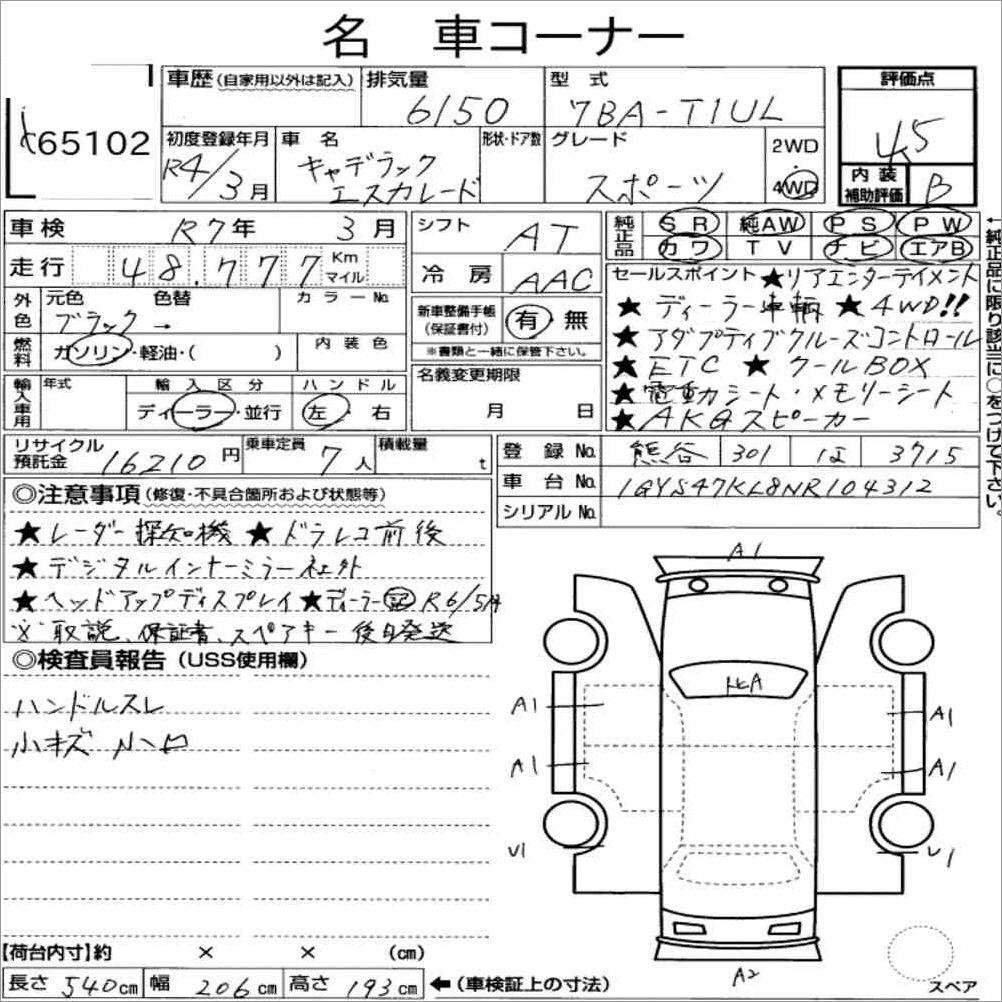 名 車コーナー
65102
車歴(自家用以外は記入) 排気量 6150 型式 7BA-T1UL
評価点 4.5
初度登録年月 R4/3月 車名 キャデラック エスカレード 形状・ドア数 グレード スポーツ 2WD・4WD
内装補助評価 B
車検 R7年 3月
シフト AT
純正品 SR 純AW PS PW
カワ TV ナビ エアB
走行 48,777 Km マイル
冷房 AAC
外色 元色 色替 カラーNo.
ブラック →
燃料 ガソリン・軽油・( ) 内装色
新車整備手帳(保証書付) 有 無
※書類と一緒に保管下さい。
セールスポイント ★リアエンターテイメント
★ディーラー車輌 ★4WD!!
★アダプティブクルーズコントロール
★ETC ★クールBOX
★電動シート・メモリーシート
★AKGスピーカー
←純正品に限り該当に○をつけて下さい。
輸入車用 年式 輸入区分 ハンドル
ディーラー・並行 左・右
名義変更期限
月 日
リサイクル預託金 16210円 乗車定員 7人 積載量 t
登録No. 熊谷 301 は 3715
車台No. 1GYS47KL8NR104312
シリアルNo.
◎注意事項(修復・不具合箇所および状態等)
★レーダー探知機 ★ドラレコ前後
★デジタルインナーミラー社外
★ヘッドアップディスプレイ ★ディーラー記R6/5月
※取説、保証書、スペアキー後日発送
◎検査員報告(USS使用欄)
ハンドルスレ
小キズ 小凹
A1
A1
A1
A1
A1
V1
V1
A2
【荷台内寸】約 × × (cm)
長さ 540cm 幅 206cm 高さ 193cm ←(車検証上の寸法)
スペア